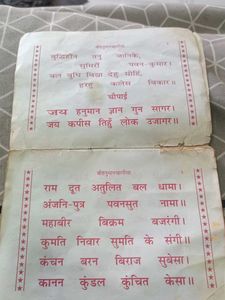 श्रीहनुमानचालीसा
बुद्धिहीन तनु जानिके,
सुमिरौं पवन-कुमार।
बल बुधि बिद्या देहु मोहिं,
हरहु कलेस बिकार॥
चौपाई
जय हनुमान ज्ञान गुन सागर।
जय कपीस तिहुँ लोक उजागर॥
श्रीहनुमानचालीसा
राम दूत अतुलित बल धामा।
अंजनि-पुत्र पवनसुत नामा॥
महाबीर बिक्रम बजरंगी।
कुमति निवार सुमति के संगी॥
कंचन बरन बिराज सुबेसा।
कानन कुंडल कुंचित केसा॥